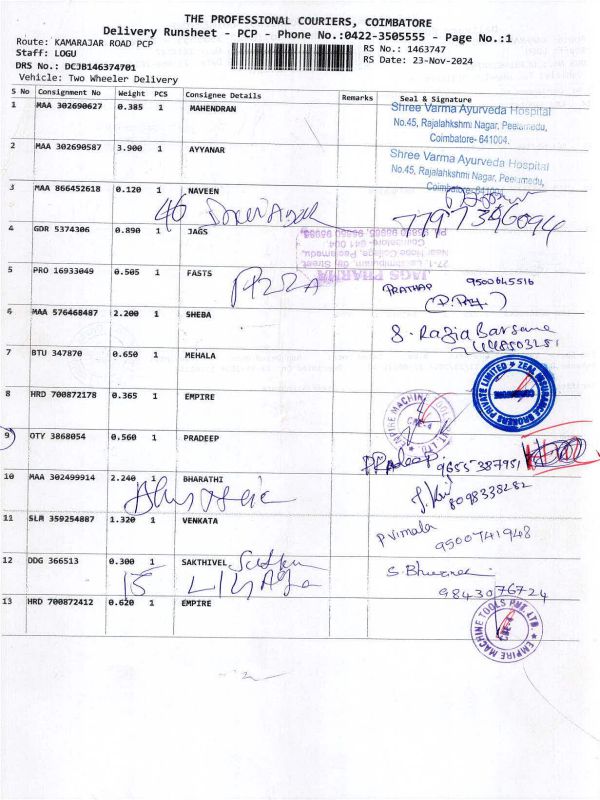 THE PROFESSIONAL COURIERS, COIMBATORE
Delivery Runsheet - PCP - Phone No.:0422-3505555 - Page No.:1
Route: KAMARAJAR ROAD PCP
RS No.: 1463747
Staff: LOGU
RS Date: 23-Nov-2024
DRS No.: DCJB146374701
Vehicle: Two Wheeler Delivery
S No Consignment No Weight PCS Consignee Details Remarks Seal & Signature
1 MAA 302690627 0.385 1 MAHENDRAN
Shree Varma Ayurveda Hospital
No.45, Rajalahkshmi Nagar, Peelamedu,
Coimbatore- 641004.
2 MAA 302690587 3.900 1 AYYANAR
Shree Varma Ayurveda Hospital
No.45, Rajalahkshmi Nagar, Peelamedu,
Coimbatore- 641004.
3 MAA 866452618 0.120 1 NAVEEN
46
7797396094
4 GDR 5374306 0.890 1 JAGS
JAGS PHARMA
5 PRO 16933049 0.505 1 FASTS
PRATHAP 9500645516
6 MAA 576468487 2.200 1 SHEBA
S. Razia
7 BTU 347870 0.650 1 MEHALA
ZEAL INSURANCE BROKERS PRIVATE LIMITED
COIMBATORE
8 HRD 700872178 0.365 1 EMPIRE
EMPIRE MACHINE TOOLS PVT. LTD.
CBE-4
9 OTY 3868054 0.560 1 PRADEEP
Pradeep. 9655387951
10 MAA 302499914 2.240 1 BHARATHI
8098338282
11 SLM 359254887 1.320 1 VENKATA
P. Vimala
9500741948
12 DDG 366513 0.300 1 SAKTHIVEL
15
9843076724
13 HRD 700872412 0.620 1 EMPIRE
EMPIRE MACHINE TOOLS PVT. LTD.
CBE-4